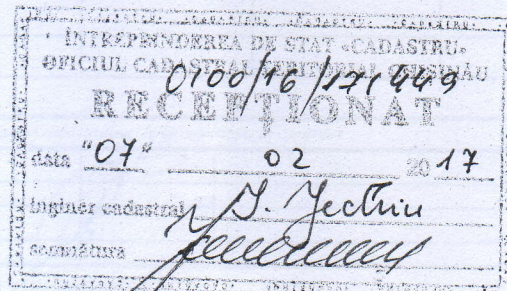 ÎNTREPRINDEREA DE STAT «CADASTRU»
OFICIUL CADASTRAL TERITORIAL CHIŞINĂU
0100/16/171449
RECEPŢIONAT
data "07" 02 2017
inginer cadastral I.
semnătura